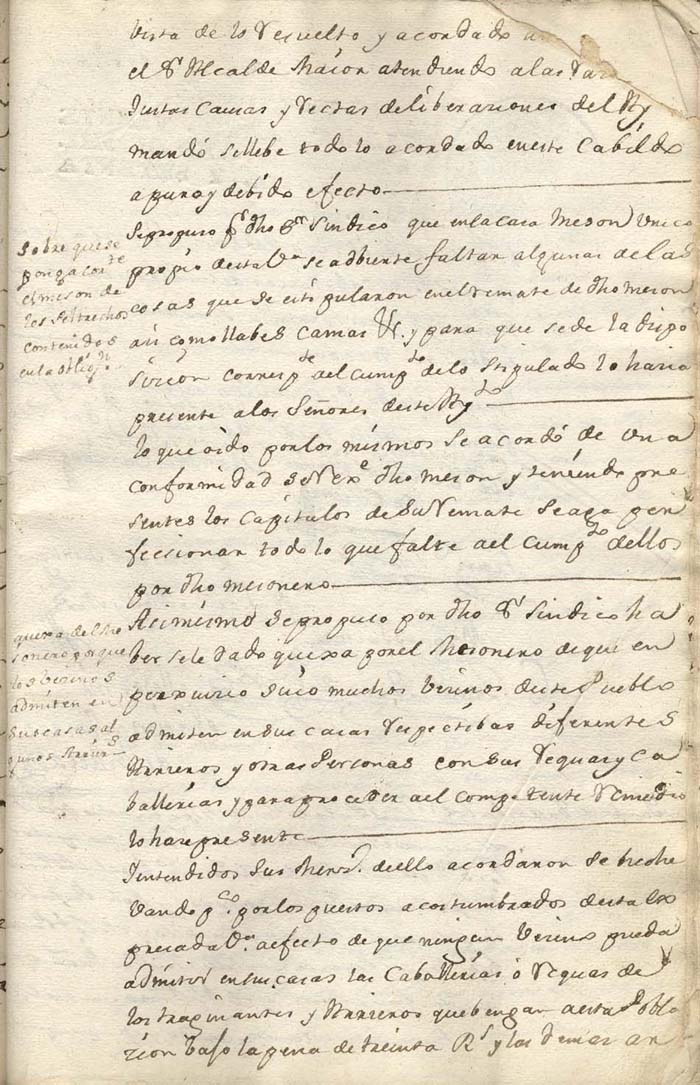 vista de lo resuelto y acordado
el Sr Alcalde maior atendiendo a las
Justas causas y rectas deliberaciones del Ay
mandó se llebe todo lo acordado en este Cabildo
a pura y debido efecto
Se propuso pr dho Sr Sindico que en la casa meson unico
propio desta Va se adbierte faltar algunas de las
cosas que se estipularon en el remate de dho meson
asi como llabes camas &c. y para que se de la dispo
sicion correspte a el cumpto de lo stipulado lo hacia
presente a los Señores deste Aymto
Sobre que se
ponga corte
el meson de
los peltrechos
contenidos
en la obligon
lo que oido por los mismos se acordó de una
conformidad dho meson y teniendo pre
sentes los capitulos de su remate se aga per
ficcionar todo lo que falte a el cumpto dellos
por dho mesonero
Asimismo se propuso por dho Sr Sindico ha
ber sele dado quexa por el Mesonero de que en
perxuicio suio muchos vecinos deste Pueblo
admiten en sus casas respectibas diferentes
Arrieros y otras Personas con sus Yeguas y ca
ballerias y para proceder a el competente remedio
lo hace presente
quexa del me
sonero porque
los vecinos
admiten en
sus casas al
gunos Arrieros
Intendidos sus merzs. dello acordaron se heche
vando pco. por los puestos acostumbrados desta ex
presada Va. a efecto de que ningun vecino pueda
admitir en sus casas las Caballerias ó Yeguas de
los traginantes y Arrieros que bengan a esta Pobla
cion bajo la pena de treinta Rs y las demas ar